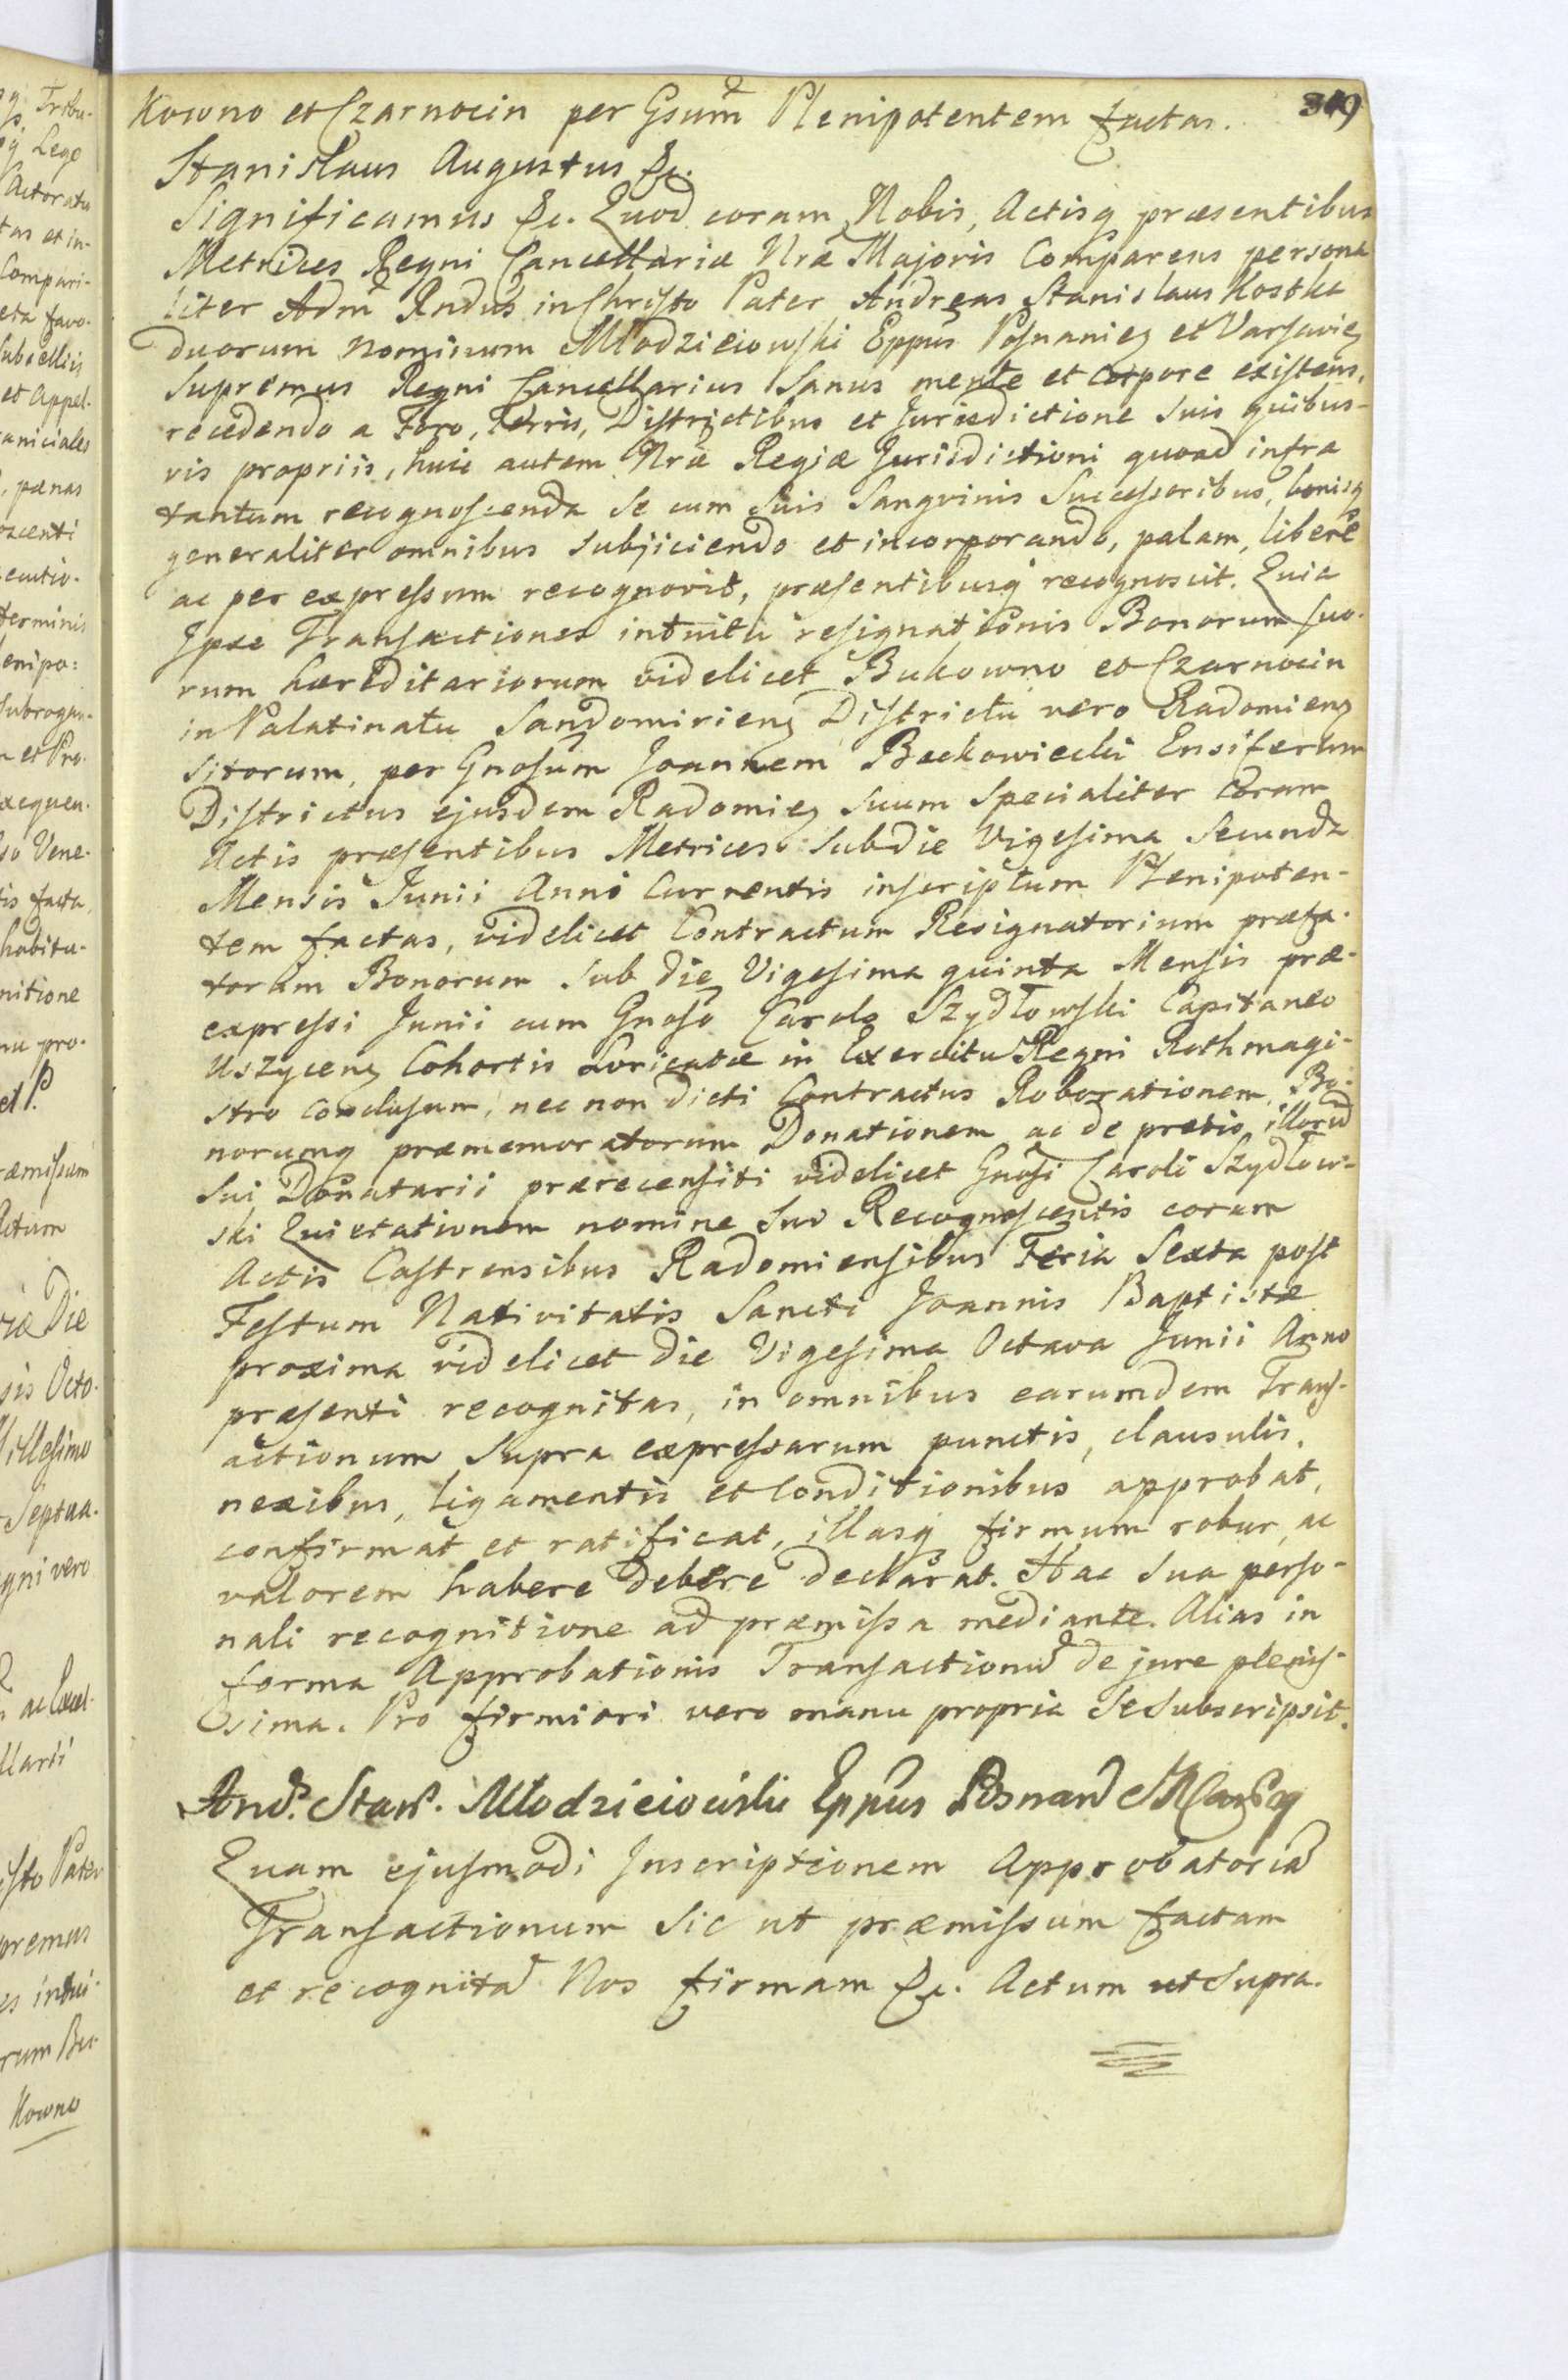 Kowno et Czarnocin per Gsum̃ Plenipotentem factas. 319
Stanislaus Augustus &c.
Significamus &c. Quod coram Nobis, Actisq præsentibus
Metrices Regni Cancellariæ Nræ Majoris Comparens persona
liter Adm̃ Rndus in Christo Pater Andreas Stanislaus Kostka
duorum Nominum Młodzieiowski Eppus Posnanieꝫ et Varsavieꝫ
Supremus Regni Cancellarius Sanus mente et corpore existens,
recedendo a Foro, Terris, Districtibus et Jurisdictione suis quibus-
vis propriis, huic autem Nræ Regiæ Jurisdictioni quoad infra
tantum recognoscenda se cum suis Sangvinis Successoribus, bonisq
generaliter omnibus subjiciendo et incorporando, palam, libere
ac per expressum recognovit, præsentibusq recognoscit. Quia
Ipse Transactiones intuitu resignationis Bonorum suo-
rum hæreditariorum videlicet Bukowno et Czarnocin
in Palatinatu Sandomirienꝫ Districtu vero Radomienꝫ
sitorum, per Gnosum Joannem Bechowiecki Ensiferum
Districtus ejusdem Radomieꝫ suum specialiter coram
Actis præsentibus Metrices sub die Vigesima Secunda
Mensis Junii Anni Currentis inscriptum Plenipoten-
tem factas, videlicet Contractum Resignatorium præfa-
torum Bonorum sub die Vigesima quinta Mensis præ-
expressi Junii cum Gnoso Carolo Szydłowski Capitaneo
Uszycenꝫ Cohortis Loricatæ in Exercitu Regni Rothmagi-
stro conclusum, nec non dicti Contractus Roborationem, Bo-
norumq præmemoratorum Donationem ac de pretio illorũ
sui Donatarii prærecensiti videlicet Gnosi Caroli Szydłow-
ski Quietationem nomine suo Recognoscentis coram
Actis Castrensibus Radomiensibus Feria Sexta post
Festum Nativitatis Sancti Joannis Baptistæ
proxima videlicet die Vigesima Octava Junii Anno
præsenti recognitas, in omnibus earumdem Trans-
actionum supra expressarum punctis, clausulis,
nexibus, ligamentis et Conditionibus approbat,
confirmat et ratificat, illasq firmum robur, ac
valorem habere debere declarat. Hac sua perso-
nali recognitione ad præmissa mediante. Alias in
forma Approbationis Transactionũ de jure plenis-
sima. Pro firmiori vero manu propria se subscripsit.
And. Stan. Młodzieiowski Eppus Posnan
Quam ejusmodi Inscriptionem Approbatoriã
Transactionum sic ut præmissum factam
et recognitã Nos firmam &c. Actum ut supra.
g Tribu-
g Lege
Actoratu
tas et in-
Compari-
eta favo-
Subselliis
et Appel-
aniciales
, pænas
scenti
ecutio-
terminis
enipo:
subrogan-
et Pro-
æquen-
so Vene-
is facta,
habitu-
nitione
nu pro-
et P.
ræmissum
Actum
riæ Die
sis Octo-
Millesimo
Septua-
gni vero
ac Excel-
llarii
isto Pater
premus
es intui-
rum Bu-
Kowno